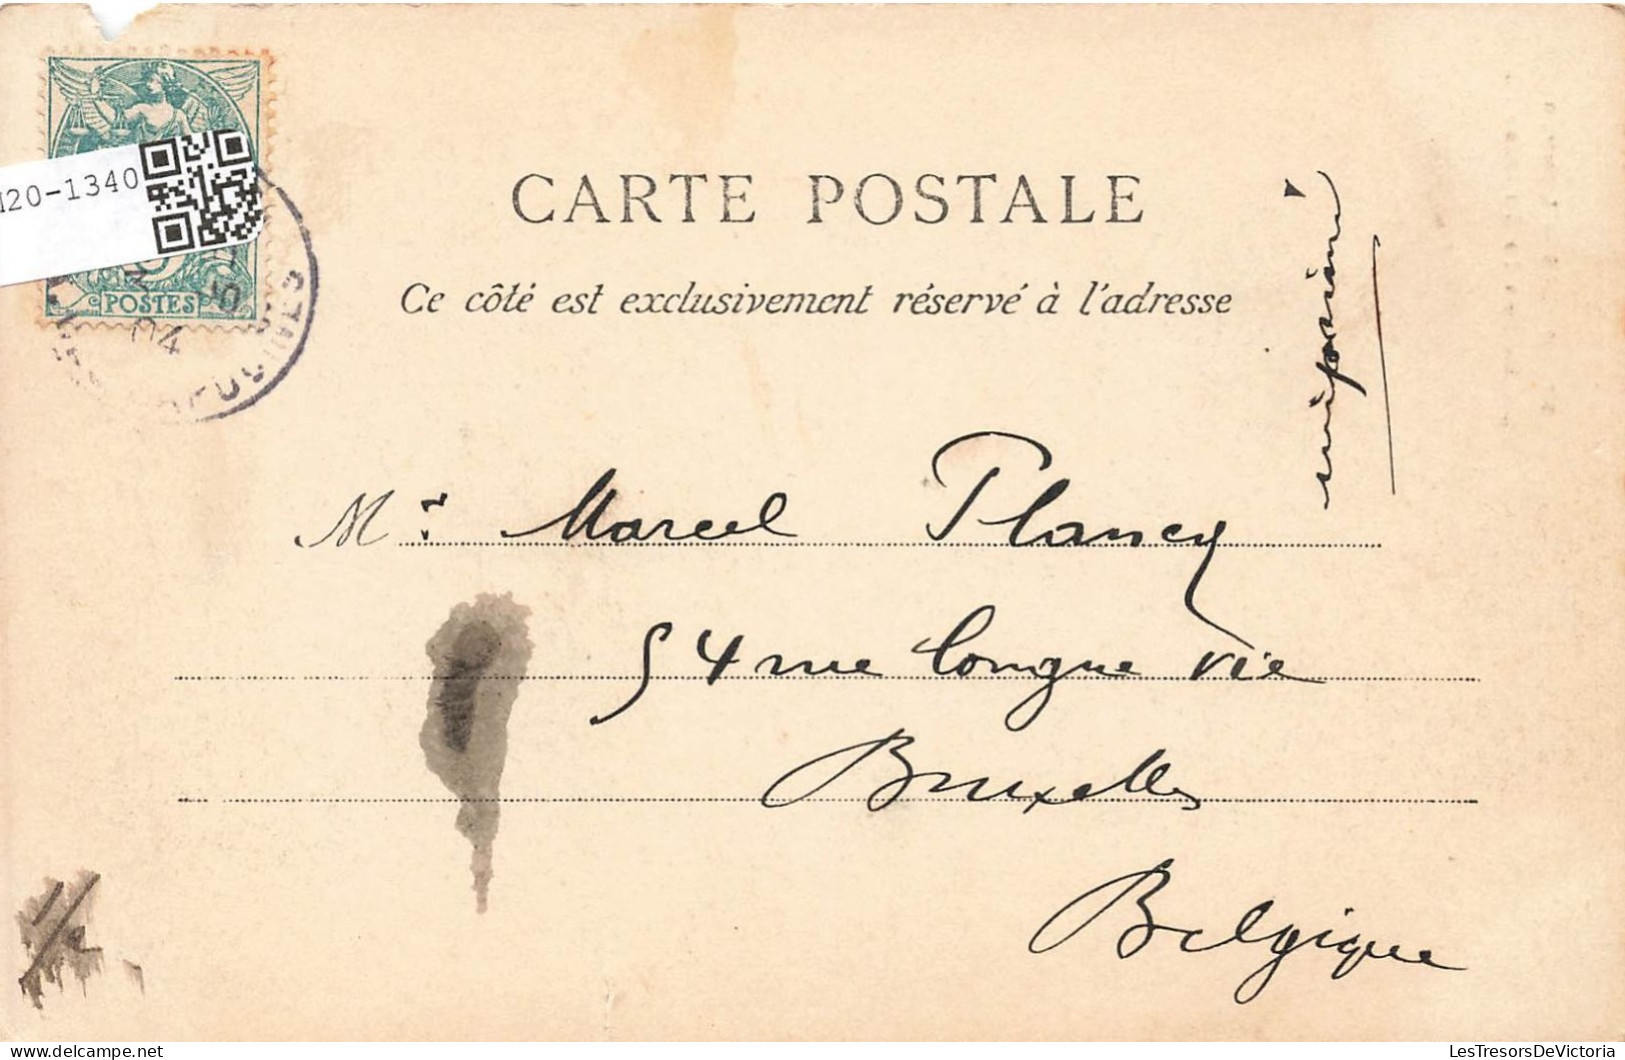 20-1340
POSTES
04
CARTE POSTALE
Ce côté est exclusivement réservé à l'adresse
imprimé
Mr Marcel Plancq
54 rue longue vie
Bruxelles
Belgique
LesTresorsDeVictoria